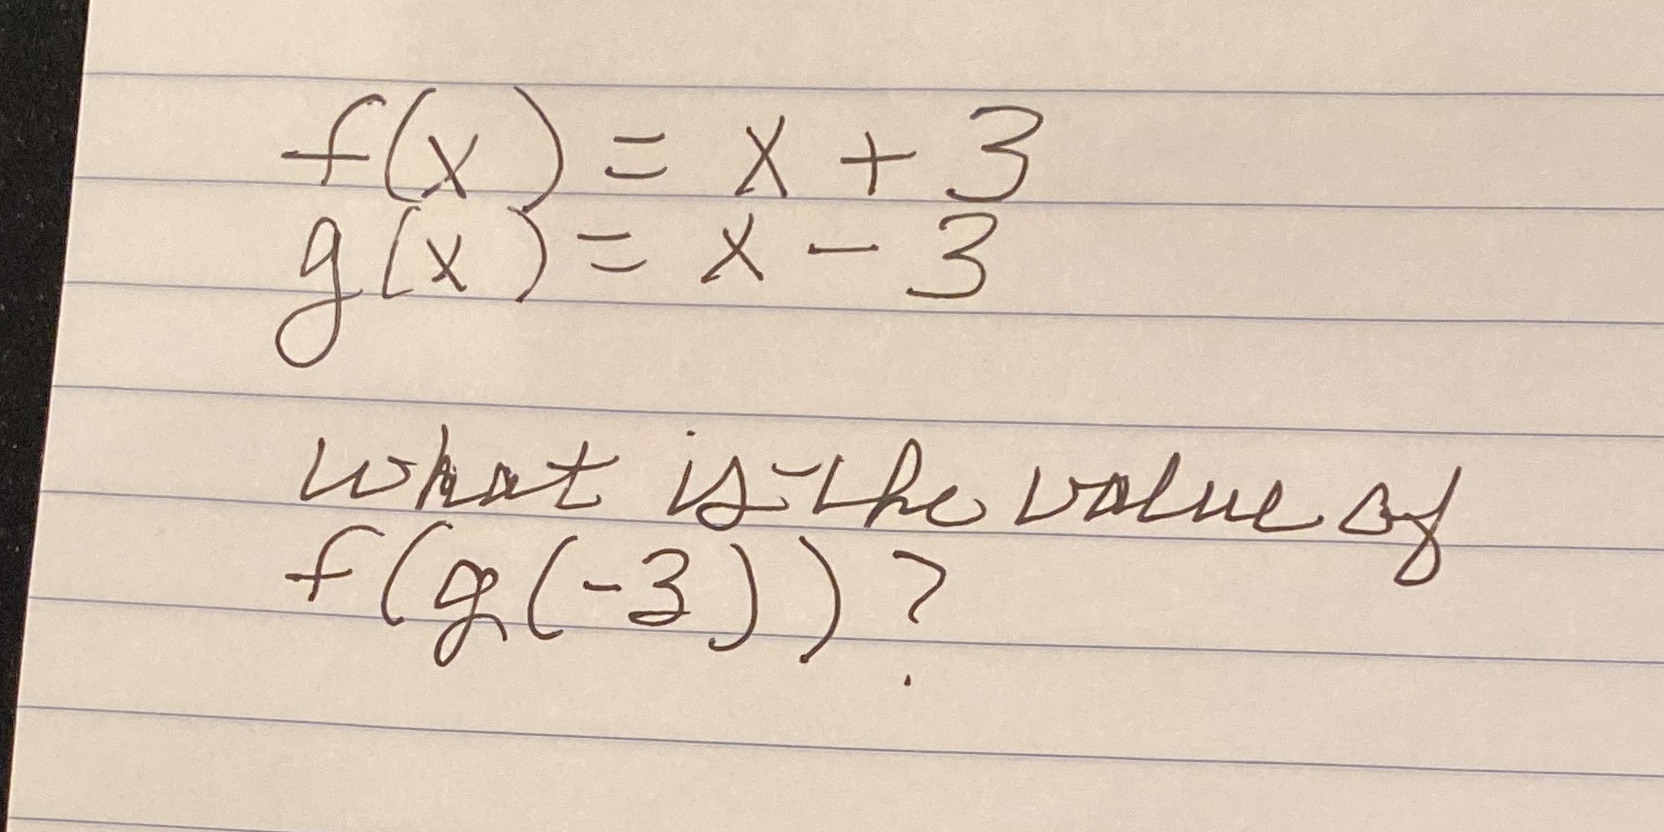 f(x) = x + 3
g(x) = x - 3
What is the value of
f(g(-3))?